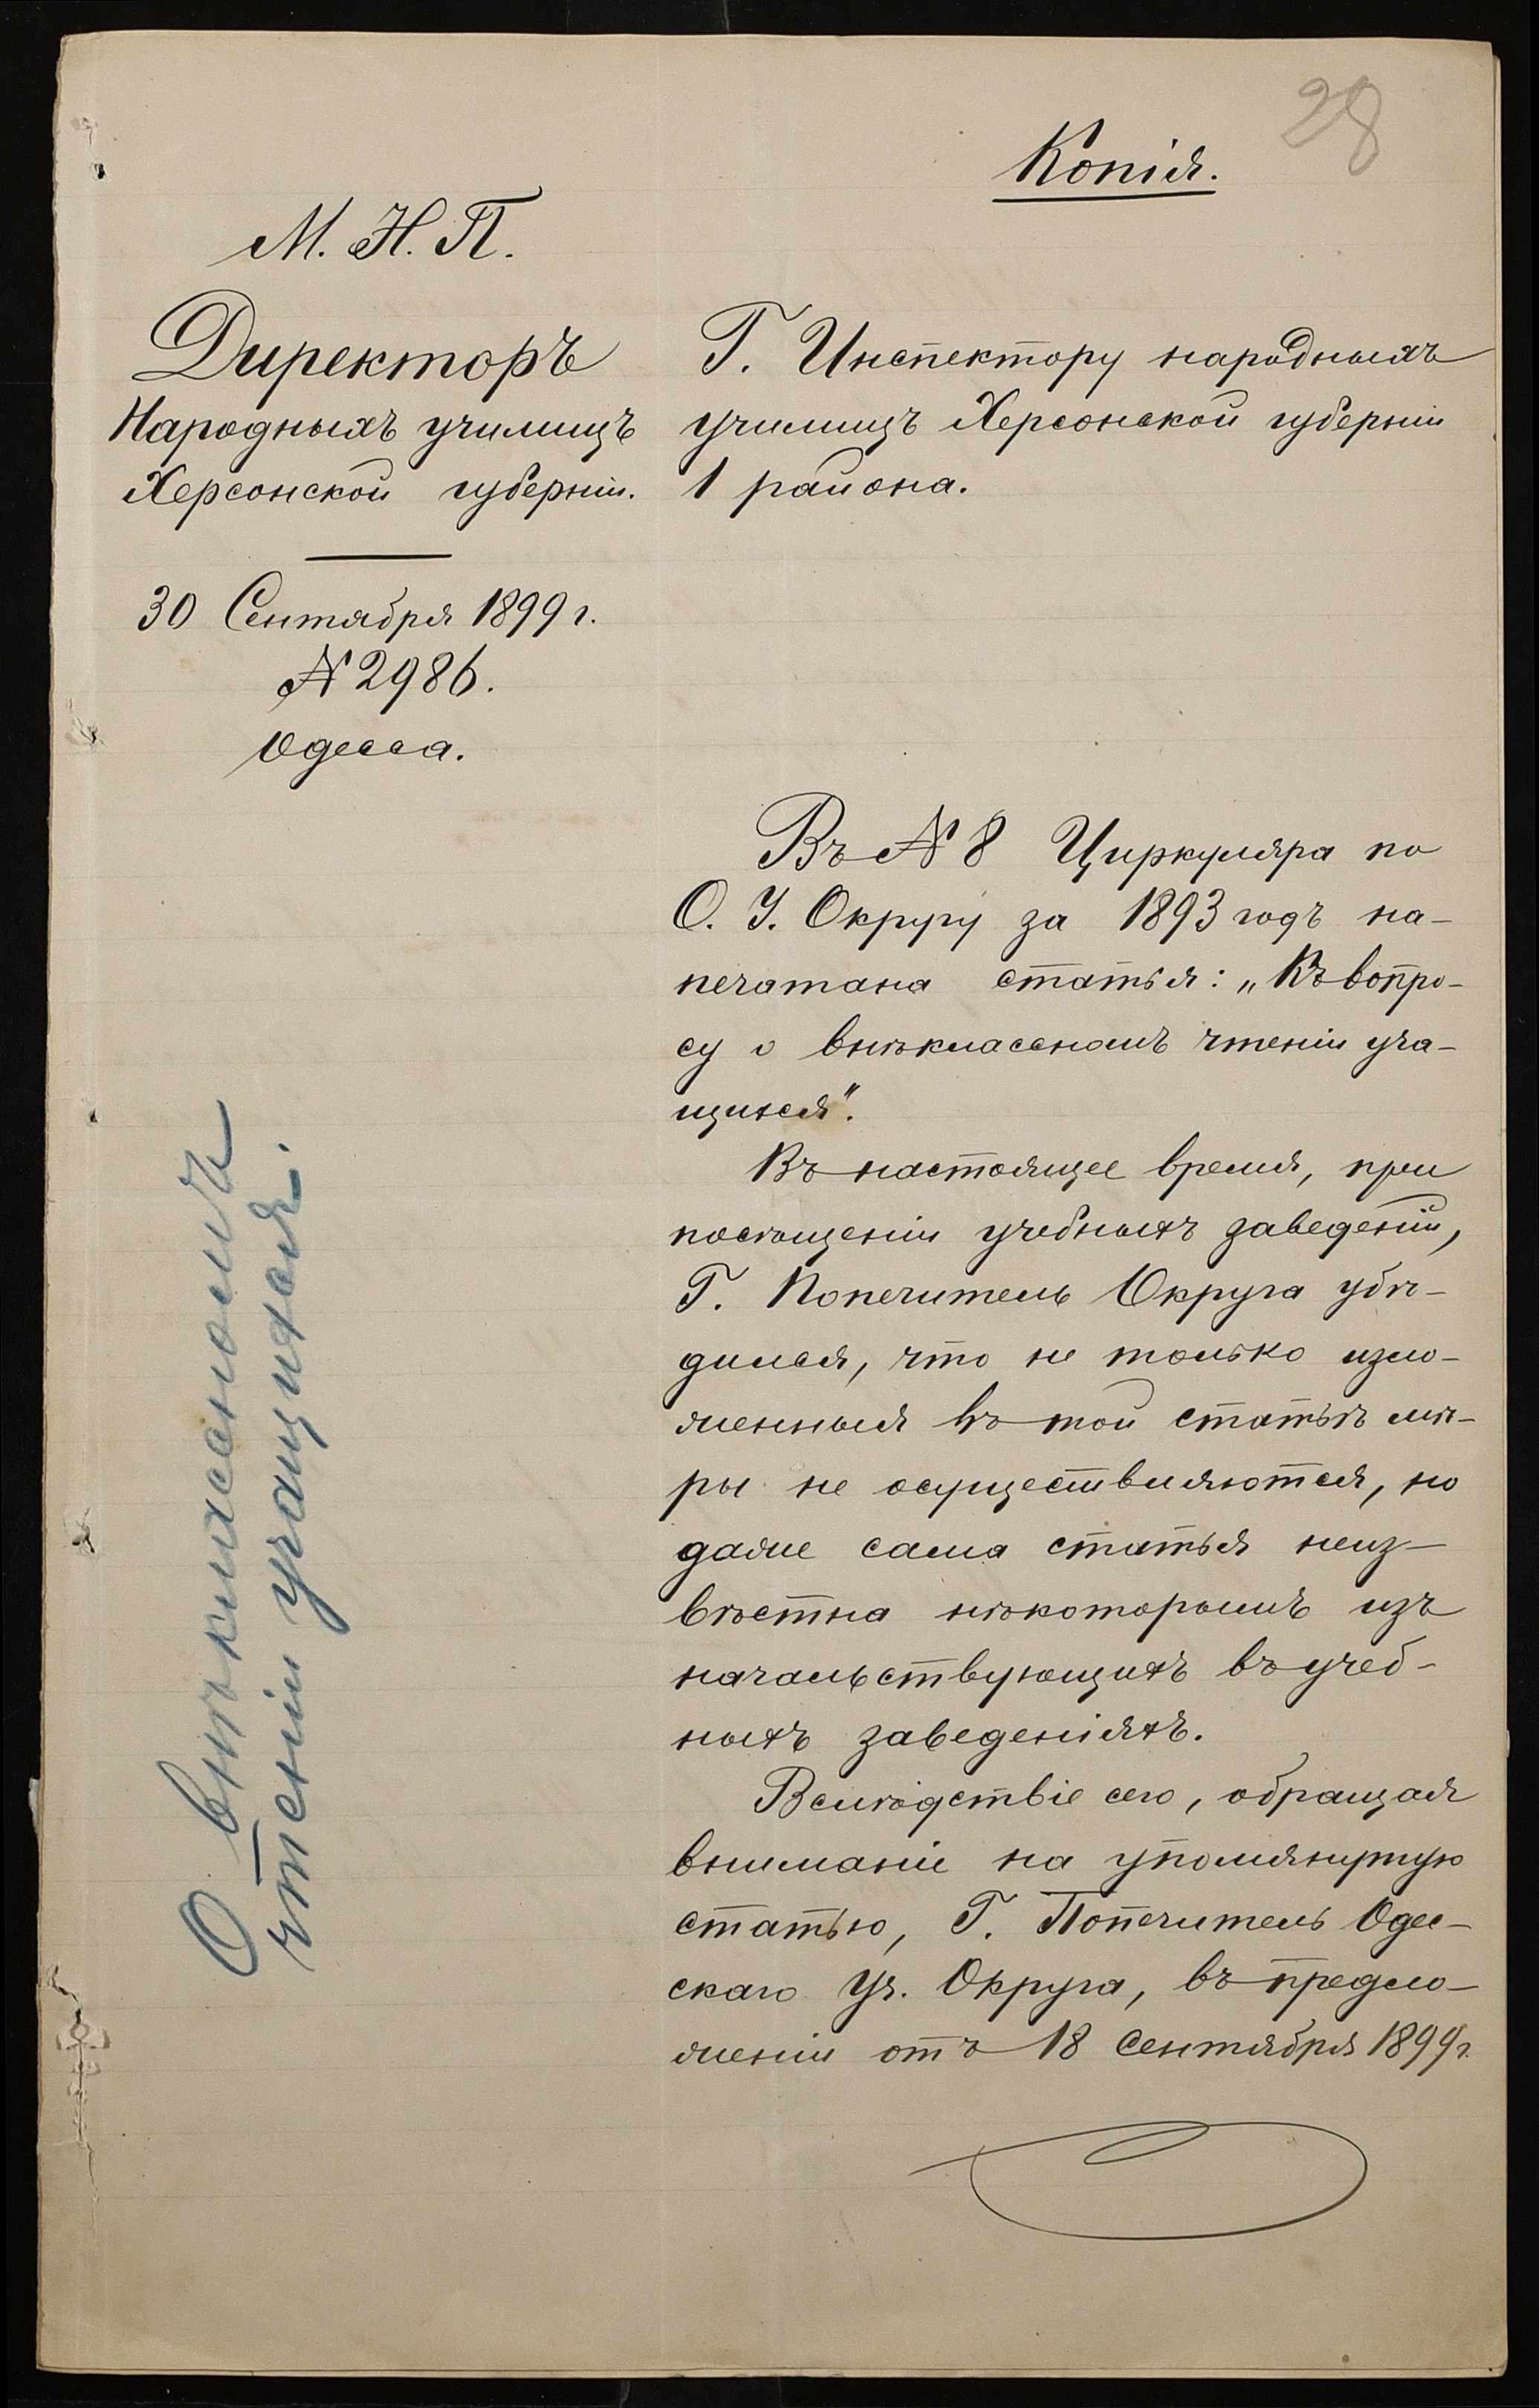 28
Копія.
М. Н. П.
Директоръ
Народныхъ училищъ
Херсонской губерніи.
30 Сентября 1899 г.
№ 2986.
Одесса.
Г. Инспектору народныхъ
училищъ Херсонской губерніи
1 района.
Въ № 8 Циркуляра по
О. У. Округу за 1893 годъ на-
печатана статья: „Къ вопро-
су о внѣклассномъ чтеніи уча-
щихся".
Въ настоящее время, при
посѣщеніи учебныхъ заведеній,
Г. Попечитель Округа убѣ-
дился, что не только изло-
женныя въ той статьѣ мѣ-
ры не осуществляются, но
даже сама статья неиз-
вѣстна нѣкоторымъ изъ
начальствующихъ въ учеб-
ныхъ заведеніяхъ.
Вслѣдствіе сего, обращая
вниманіе на упомянутую
статью, Г. Попечитель Одес-
скаго Уч. Округа, въ предло-
женіи отъ 18 Сентября 1899 г.
О внѣклассномъ
чтеніи учащихся.